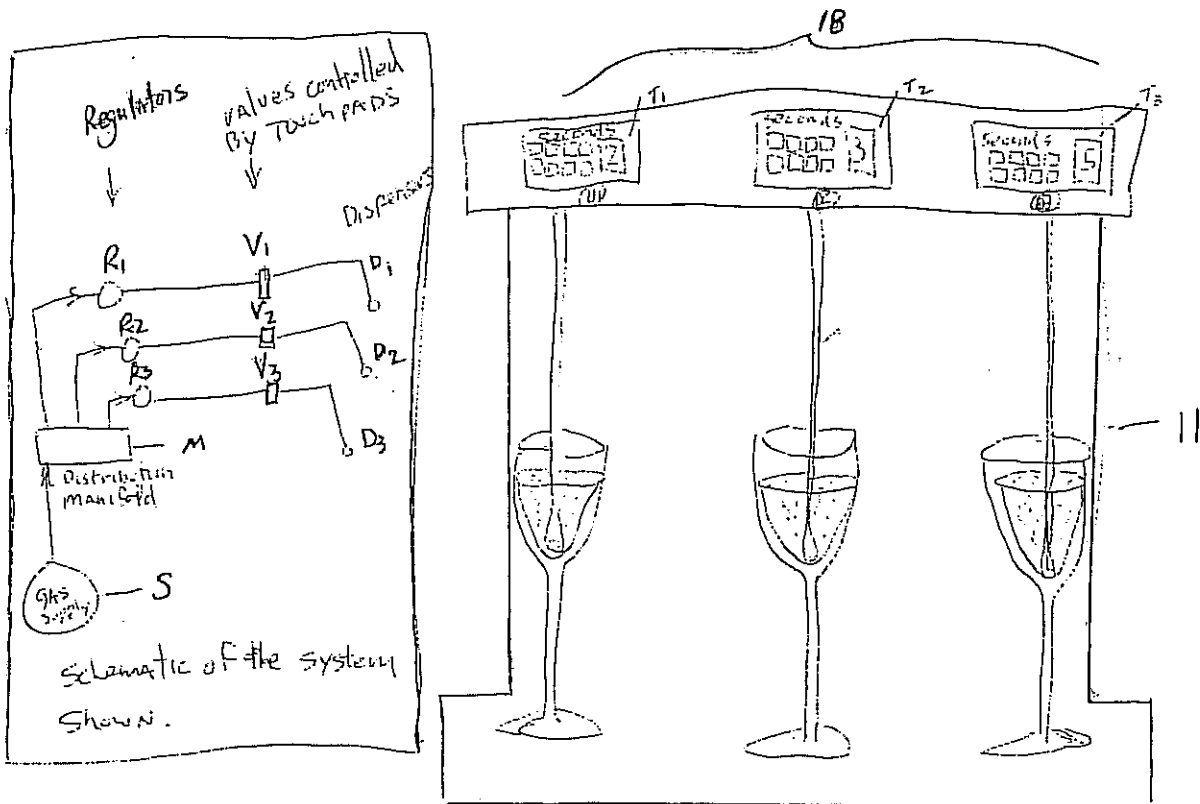 Regulators
valves controlled
By Touch PADS
Dispensers
R1
V1
D1
R2
V2
D2
R3
V3
D3
M
Distribution
Manifold
GAS
Supply
S
Schematic of the system
Shown.
18
T1
T2
T3
Seconds
2
Seconds
3
Seconds
5
11